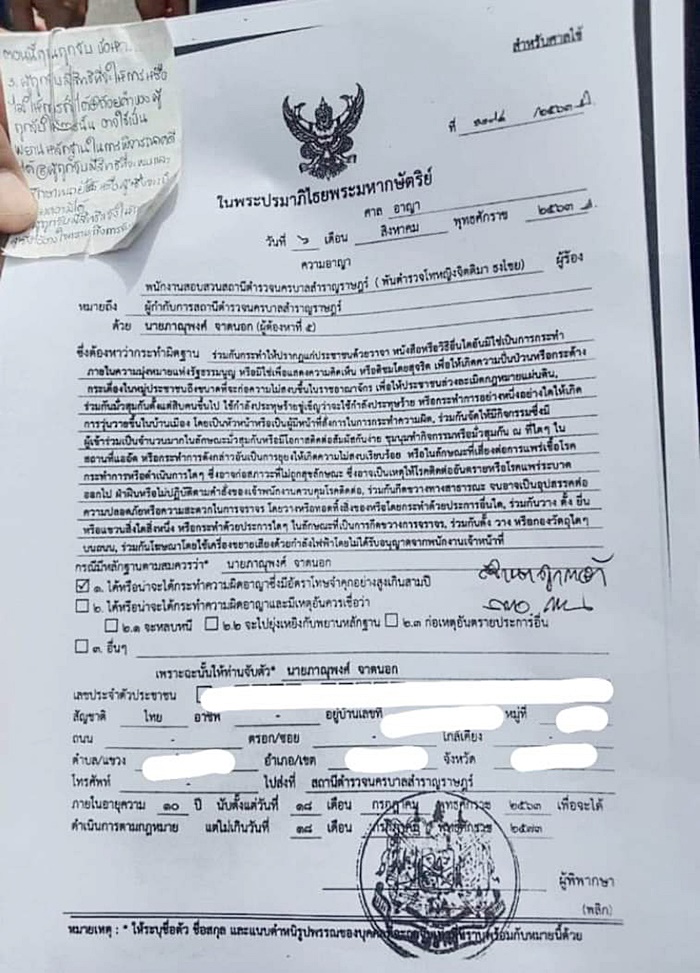 สำหรับศาลใช้
ตอนนี้คุณถูกจับ
ที่ /๒๕๖๓
ในพระปรมาภิไธยพระมหากษัตริย์
ศาล อาญา
วันที่ ๖ เดือน สิงหาคม พุทธศักราช ๒๕๖๓
ความอาญา
พนักงานสอบสวนสถานีตำรวจนครบาลสำราญราษฎร์ ( พันตำรวจโทหญิงจิตติมา ธงไชย) ผู้ร้อง
หมายถึง ผู้กำกับการสถานีตำรวจนครบาลสำราญราษฎร์
ด้วย นายภาณุพงศ์ จาดนอก (ผู้ต้องหาที่ ๕)
ซึ่งต้องหาว่ากระทำผิดฐาน ร่วมกันกระทำให้ปรากฏแก่ประชาชนด้วยวาจา หนังสือหรือวิธีอื่นใดอันมิใช่เป็นการกระทำ
ภายในความมุ่งหมายแห่งรัฐธรรมนูญ หรือมิใช่เพื่อแสดงความคิดเห็น หรือติชมโดยสุจริต เพื่อให้เกิดความปั่นป่วนหรือกระด้าง
กระเดื่องในหมู่ประชาชนถึงขนาดที่จะก่อความไม่สงบขึ้นในราชอาณาจักร เพื่อให้ประชาชนล่วงละเมิดกฎหมายแผ่นดิน,
ร่วมกันมั่วสุมกันตั้งแต่สิบคนขึ้นไป ใช้กำลังประทุษร้ายขู่เข็ญว่าจะใช้กำลังประทุษร้าย หรือกระทำการอย่างหนึ่งอย่างใดให้เกิด
การวุ่นวายขึ้นในบ้านเมือง โดยเป็นหัวหน้าหรือเป็นผู้มีหน้าที่สั่งการในการกระทำความผิด, ร่วมกันจัดให้มีกิจกรรมซึ่งมี
ผู้เข้าร่วมเป็นจำนวนมากในลักษณะมั่วสุมกันหรือมีโอกาสติดต่อสัมผัสกันง่าย ชุมนุมทำกิจกรรมหรือมั่วสุมกัน ณ ที่ใดๆ ใน
สถานที่แออัด หรือกระทำการดังกล่าวอันเป็นการยุยงให้เกิดความไม่สงบเรียบร้อย หรือในลักษณะที่เสี่ยงต่อการแพร่เชื้อโรค
กระทำการหรือดำเนินการใดๆ ซึ่งอาจก่อสภาวะที่ไม่ถูกสุขลักษณะ ซึ่งอาจเป็นเหตุให้โรคติดต่ออันตรายหรือโรคแพร่ระบาด
ออกไป ฝ่าฝืนหรือไม่ปฏิบัติตามคำสั่งของเจ้าพนักงานควบคุมโรคติดต่อ, ร่วมกันกีดขวางทางสาธารณะ จนอาจเป็นอุปสรรคต่อ
ความปลอดภัยหรือความสะดวกในการจราจร โดยวางหรือทอดทิ้งสิ่งของหรือโดยกระทำด้วยประการอื่นใด, ร่วมกันวาง ตั้ง ยื่น
หรือแขวนสิ่งใดสิ่งหนึ่ง หรือกระทำด้วยประการใดๆ ในลักษณะที่เป็นการกีดขวางการจราจร, ร่วมกันตั้ง วาง หรือกองวัตถุใดๆ
บนถนน, ร่วมกันโฆษณาโดยใช้เครื่องขยายเสียงด้วยกำลังไฟฟ้าโดยไม่ได้รับอนุญาตจากพนักงานเจ้าหน้าที่
กรณีมีหลักฐานตามสมควรว่า* นายภาณุพงศ์ จาดนอก
๑. ได้หรือน่าจะได้กระทำความผิดอาญาซึ่งมีอัตราโทษจำคุกอย่างสูงเกินสามปี
๒. ได้หรือน่าจะได้กระทำความผิดอาญาและมีเหตุอันควรเชื่อว่า
๒.๑ จะหลบหนี ๒.๒ จะไปยุ่งเหยิงกับพยานหลักฐาน ๒.๓ ก่อเหตุอันตรายประการอื่น
๓. อื่นๆ
เพราะฉะนั้นให้ท่านจับตัว* นายภาณุพงศ์ จาดนอก
เลขประจำตัวประชาชน
สัญชาติ ไทย อาชีพ - อยู่บ้านเลขที่ หมู่ที่
ถนน - ตรอก/ซอย - ใกล้เคียง -
ตำบล/แขวง อำเภอ/เขต จังหวัด
โทรศัพท์ - ไปส่งที่ สถานีตำรวจนครบาลสำราญราษฎร์
ภายในอายุความ ๑๐ ปี นับตั้งแต่วันที่ ๑๘ เดือน กรกฎาคม พุทธศักราช ๒๕๖๓ เพื่อจะได้
ดำเนินการตามกฎหมาย แต่ไม่เกินวันที่ ๑๘ เดือน กรกฎาคม พุทธศักราช ๒๕๗๓
ผู้พิพากษา
(พลิก)
หมายเหตุ : * ให้ระบุชื่อตัว ชื่อสกุล และแนบตำหนิรูปพรรณของบุคคลที่จะถูกจับเท่าที่ทราบพร้อมกับหมายนี้ด้วย